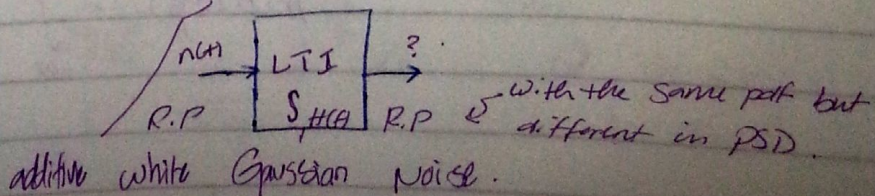 n(t) LTI ?
S, H(f)
R.P R.P with the same pdf but
different in PSD.
additive white Gaussian Noise.